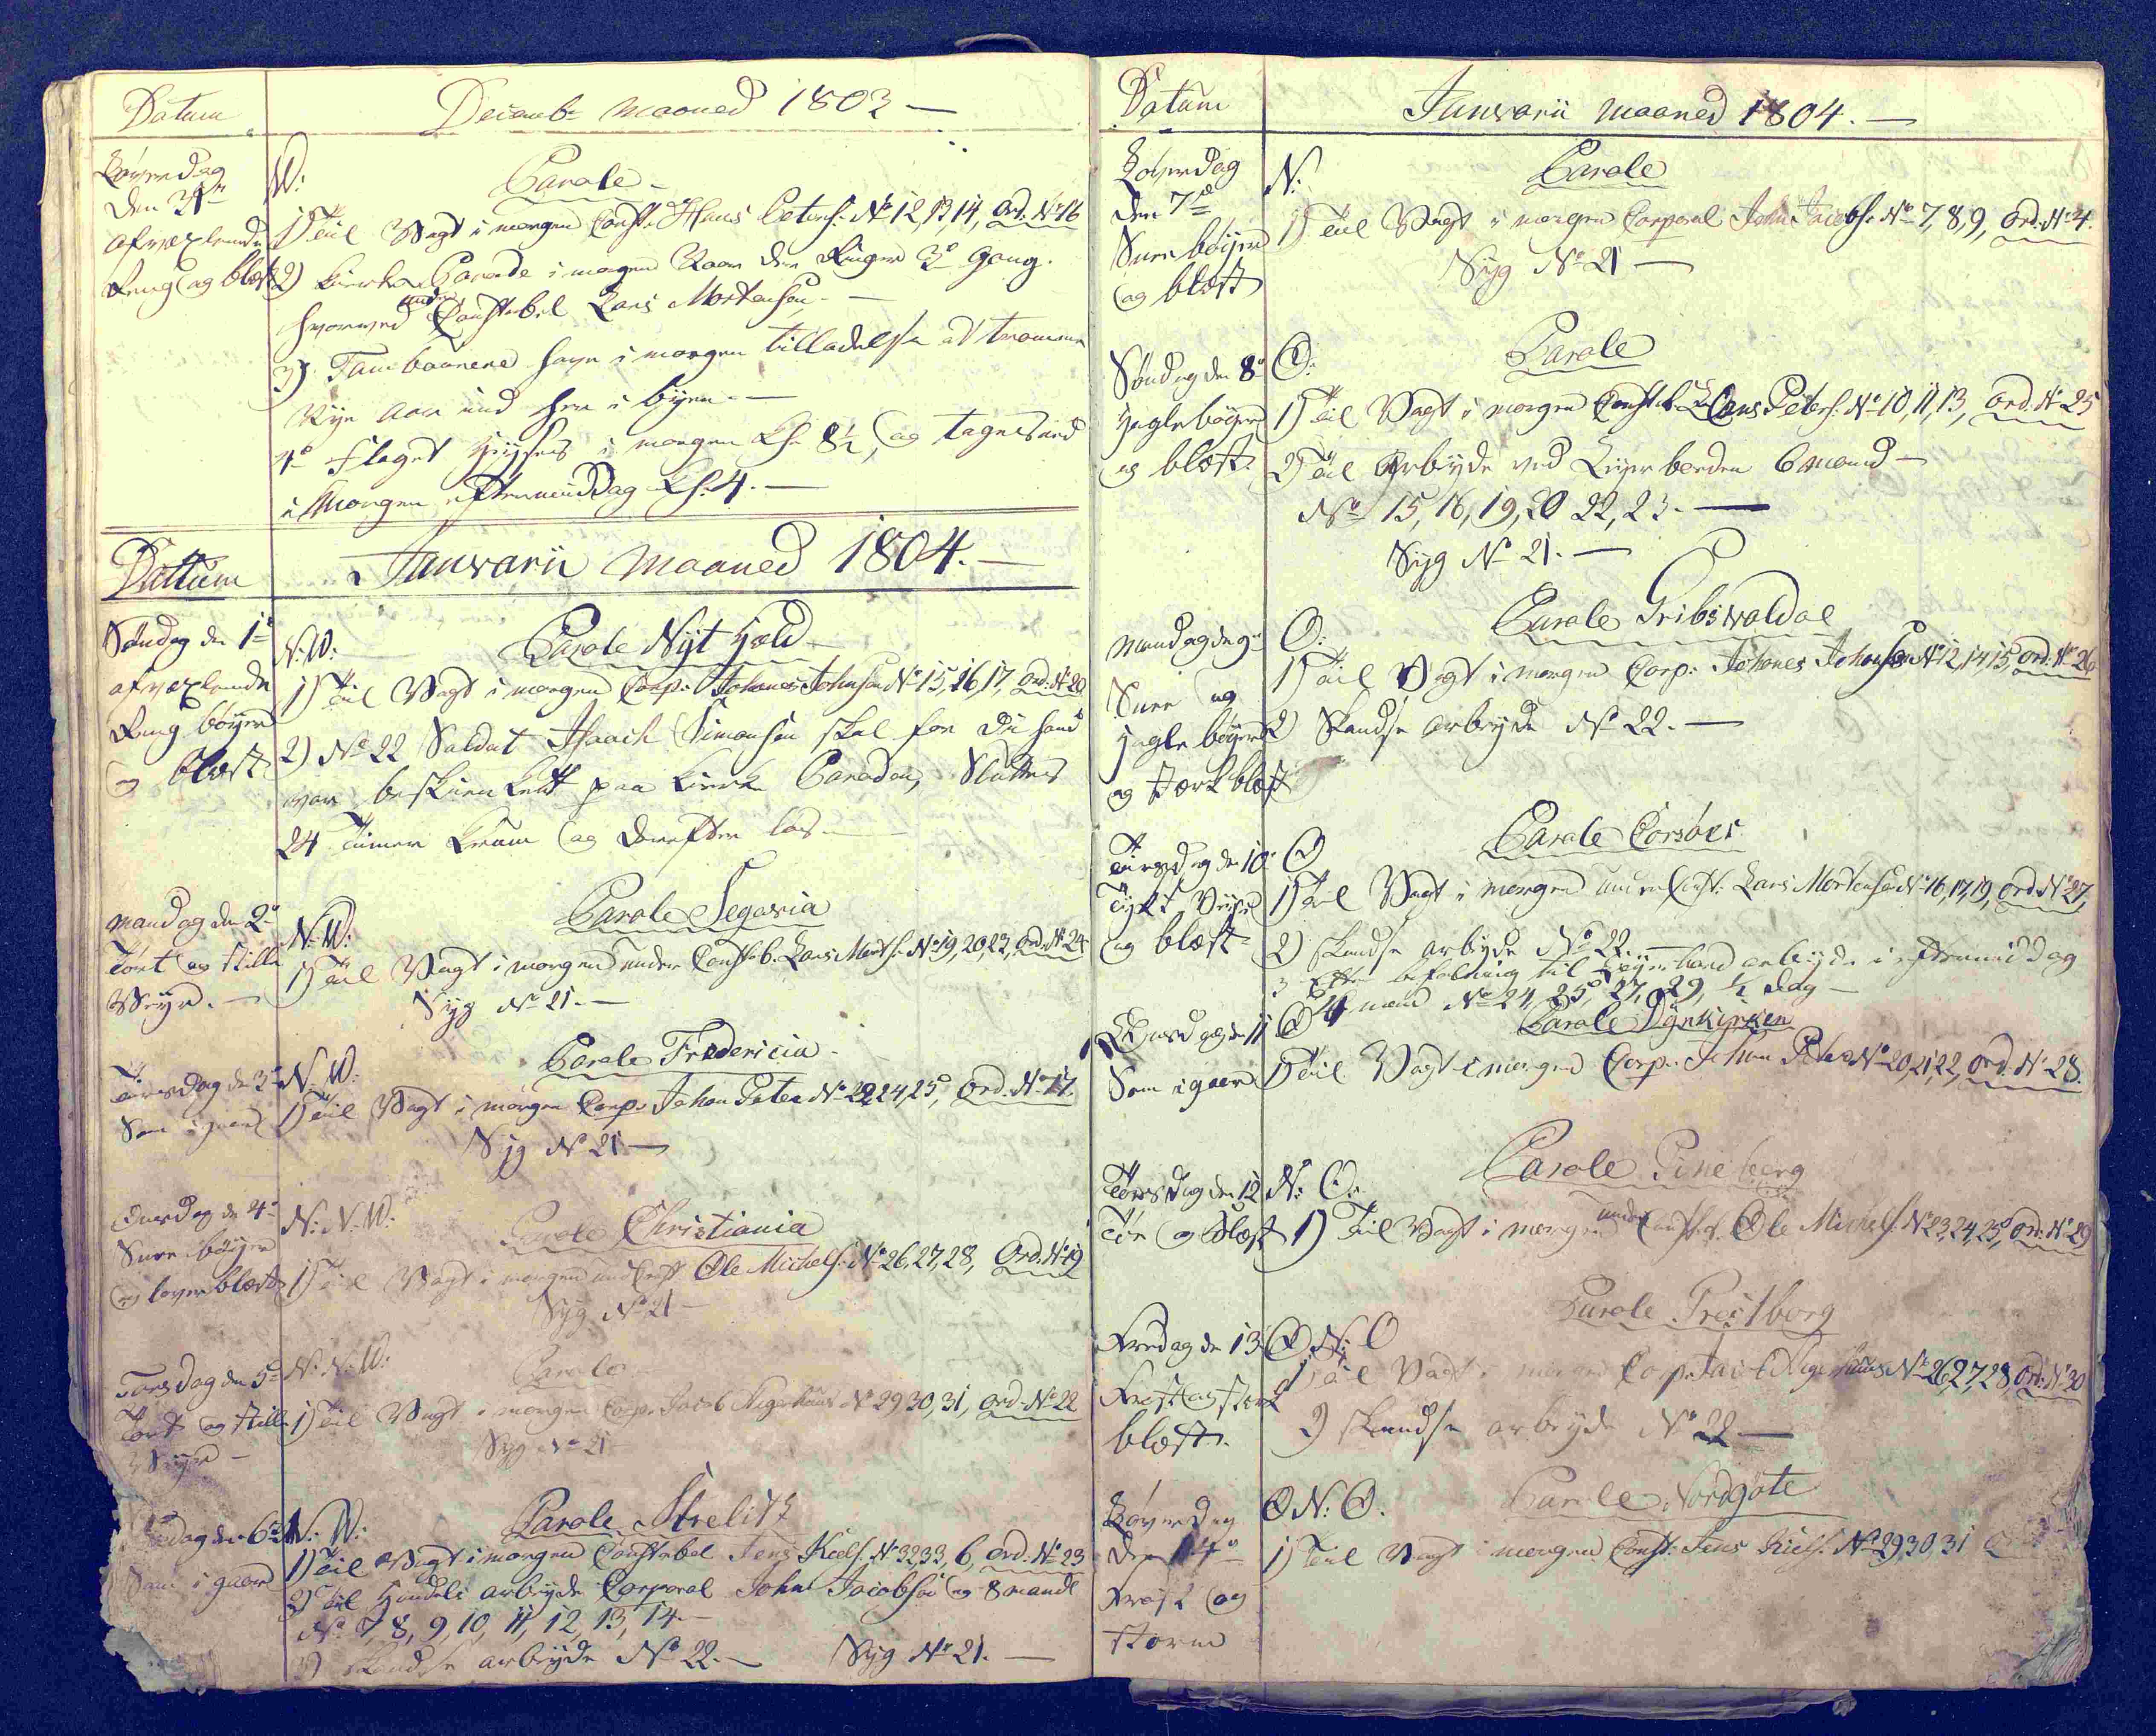 Datum
Decemb: Maaned 1803 —
Løverdag
den 31te
afvexlende
Reng og blæst
W:
Parole —
1) Til Vagt i morgen Const: Hans Peters: No 12, 13, 14, Ord: No 16
2) Kierke Parade i morgen Naar der Ringer 3de Gang.
hvorved under Constabel Lars Mortensen —
3) Tambourerne haver i morgen tilladelse at tromme
Nye Aar ind her i byen. —
4de Flaget heyses i morgen Kl. 8½, og tages ned
i Morgen eftermiddag Kl. 4. —
Dattum
Januarii Maaned 1804. —
Søndag den 1te
afvexlende
Reng bøyer
og blæst
N: W:
Parole Nyt held
1) Til Vagt i morgen Corp: Johanes Johnsen No 15, 16, 17, Ord: No 20
2) No 22 Soldat Isaach Simonsen skal for di hand
var beskienket paa Kierke Paraden, Sluttes
24 Timer krum og derefter løs —
Mandag den 2de
Tørt og stille
Veyr. —
N: W:
Parole Segovia
1) Til Vagt i morgen under Constab: Lars Morts: No 19, 20, 23, Ord: No 24
Syg No 21. —
Tirsdag de 3de
Som igaar
N: W:
Parole Fredericia —
1) Til Vagt i morgen Corp: Johan Peter No 22, 24, 25, Ord: No 17.
Syg No 21 —
Onsdag de 4de
Snee bøyer
og blæst
N: N: W:
Parole Christiania
1) Til Vagt i morgen und Const Ole Michels: No 26, 27, 28, Ord: No 19
Syg No 21 —
Torsdag den 5te
Tørt og stille
Veyr —
N: N: W:
Parole
1) Til Vagt i morgen Corp: Jacob No 29 30, 31, Ord: No 22
Syg No 21
den 6te
Som i gaar
N: W:
Parole Strelitz
1) Til Vagt i morgen Constabel Jens Kiels: No 32 33, 6, Ord: No 23
2) Til Handels arbeyde Corporal John Jacobsen og 8 mand
No 7, 8, 9, 10, 11, 12, 13, 14 —
3) Skandse arbeyde No 22. — Syg No 21. —
Datum
Januarii Maaned 1804. —
Løverdag
den 7de
Snee bøyer
og blæst
N:
Parole
1) Til Vagt i morgen Corporal John Jacobs: No 7, 8, 9, Ord: No 4.
Syg No 21 —
Søndag den 8de
hagle bøyer
og blæst
O:
Parole
1) Til Vagt i morgen Constab: Hans Peters: No 10, 11, 13, Ord: No 25
2) Til Arbeyde ved 6 mand —
No 15, 16, 19, 20 22, 23. —
Syg No 21. —
Mandag de 9de
Snee og
hagle bøyer
og stærk blæst
O:
Parole Gribswaldal
1) Til Vagt i morgen Corp: Johanes Johnsen No 12, 14, 15 Ord: No 26
2) Skandse arbeyde No 22. —
Tirsdag den 10de
Tykt Veyr
og blæst
O
Parole Corsøer
1) Til Vagt i morgen under Const: Lars Mortensen No 16, 17, 19, Ord: No 27,
2) Skandse arbeyde No 22. —
3 Efter befalning til arbeyde i eftermiddag
4 mand No 24, 25, 27, 29, ½ dag —
Onsdag den 11
Som igaar
O
Parole Dynkirken
1) Til Vagt i morgen Corp: Johan Peter No 20, 21, 22, Ord: No 28.
Torsdag den 12
Tør og Blæst
N: O:
Parole Pineberg
1) Til Vagt i morgen under Const: Ole Michels: No 23, 24, 25, Ord: No 29
Fredag de 13
Frost og sterk
blæst.
O N: O
Parole Prestborg
1) Til Vagt i morgen Corp: Jacob No 26, 27, 28, Ord: No 30
2) Skandse arbeyde No 22 —
Løverdag
den 14de
Frost og
storm
O N: O.
Parole Nordgöte
1) Til Vagt i morgen Const: Jens Kiels: No 29 30, 31